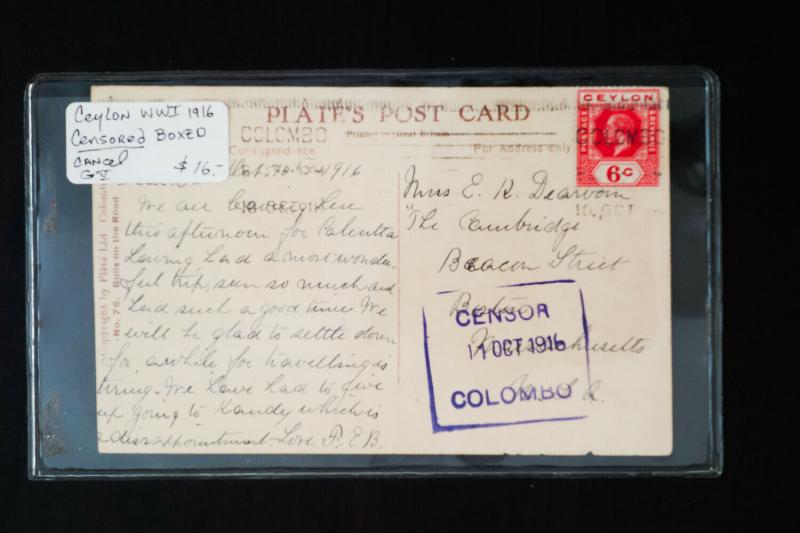 Ceylon WWI 1916
Censored BOXED
Cancel
GV $16.-
PLATÉ'S POST CARD
Printed in Great Britain
Correspondence
For Address only
COLOMBO
1916
We are leaving here
this afternoon for Calcutta
having had a most wonder-
ful trip, seen so much and
had such a good time. We
will be glad to settle down
for awhile for travelling is
tiring. We have had to give
up going to Kandy which is
a disappointment. Love F.E.B.
Copyright by Plâté Ltd Colombo
No. 76. Bulls on the Road
CEYLON
POSTAGE
& REVENUE
6c
COLOMBO
10. OCT
Mrs E. R. Dearborn
"The Cambridge
Beacon Street
Boston
Massachusetts
CENSOR
11 OCT 1916
COLOMBO